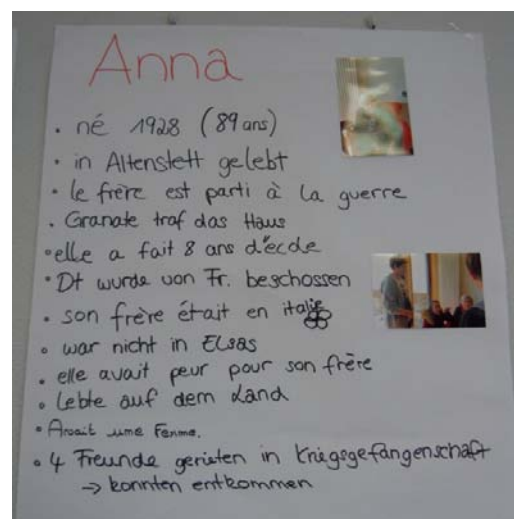 Anna
• né 1928 (89 ans)
• in Altenstett gelebt
• le frère est parti à la guerre
• Granate traf das Haus
• elle a fait 8 ans d'école
• Dt wurde von Fr. beschossen
• son frère était en italie
• war nicht in Elsas
• elle avait peur pour son frère
• Lebte auf dem Land
• Avait une Ferme.
• 4 Freunde gerieten in Kriegsgefangenschaft
→ konnten entkommen